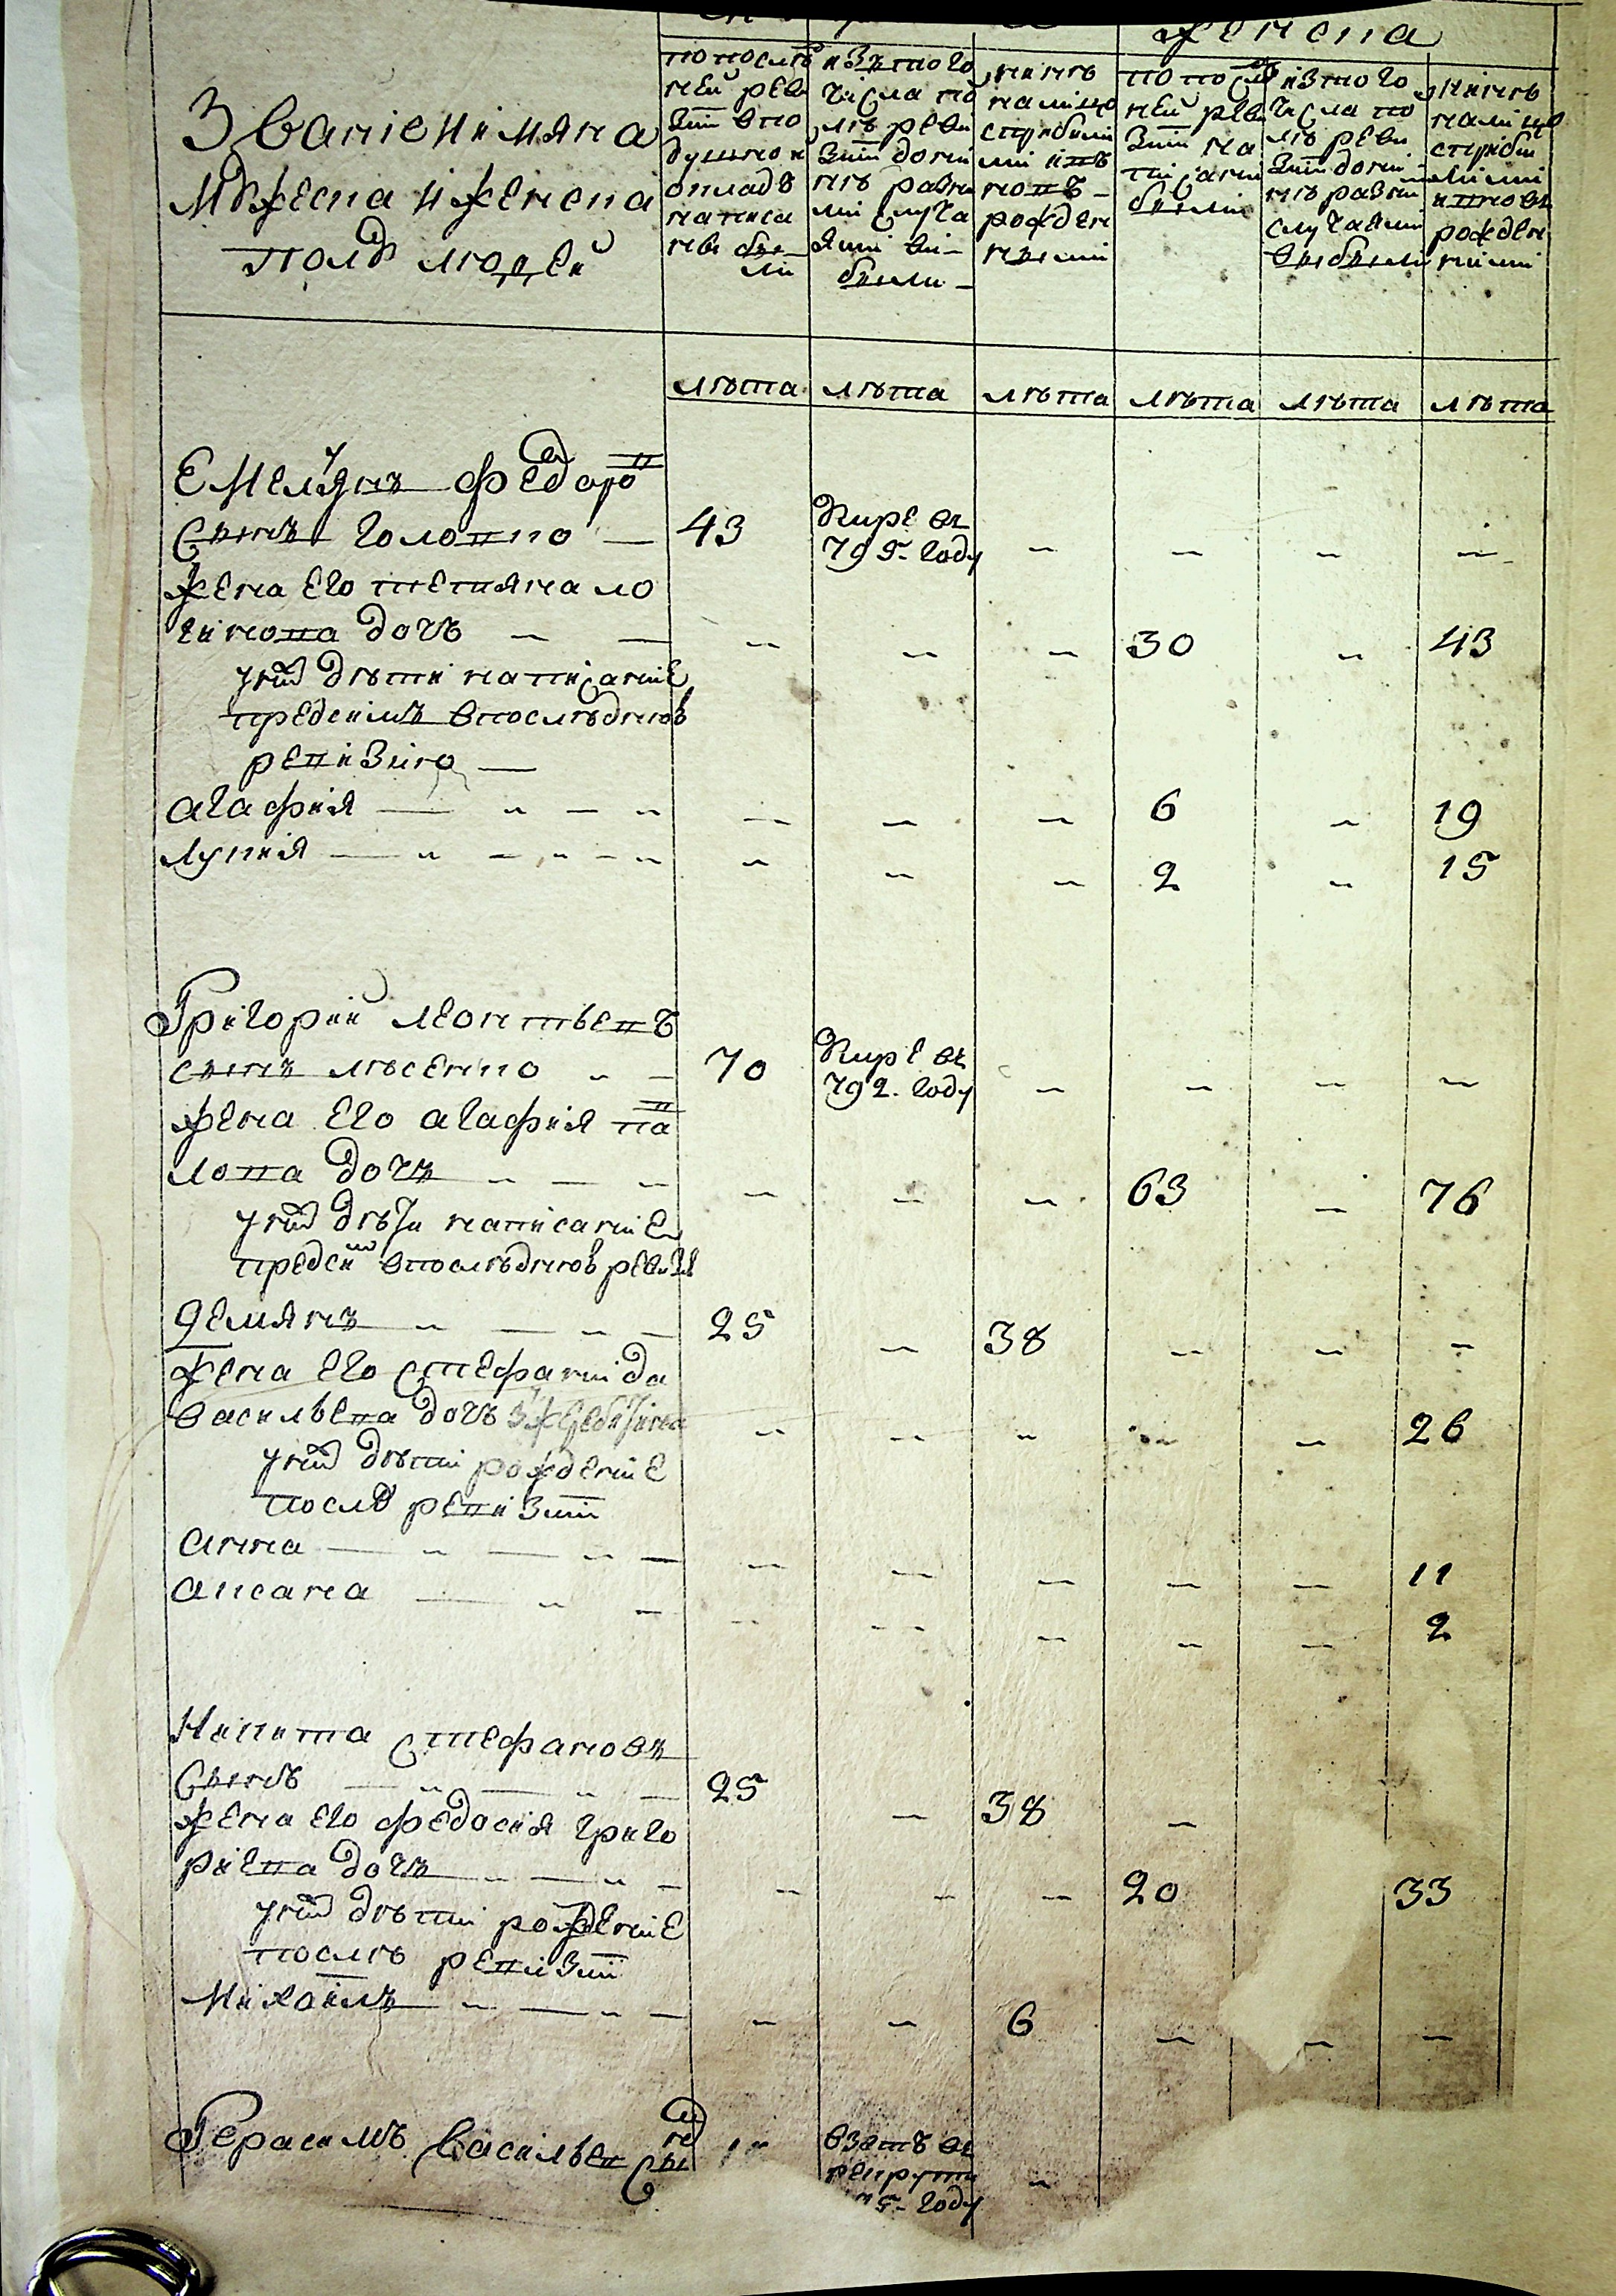 женска
Звание и имяна
мужеска и женска
полу людей
по послѣд
ней реви
зии в по
душном
окладѣ
написа
ны бы
ли
изъ того
числа по
слѣ реви
зии до ни
нѣ разни
ми случа
ями вы
были
нинѣ
на лицо
с прибыли
ми и въ
новъ
рожден
ными
по послѣд
ней реви
зии на
писани
были
из того
числа по
слѣ реви
зии до ни
нѣ разни
случаями
выбыли
нинѣ
на лицо
с прибы
лими
и въновъ
рожден
ними
лѣта лѣта лѣта лѣта лѣта лѣта
Емельянъ Федоровъ
Сынъ Головко — 43 Умре въ
795. году
жена его тетяна ло
гинова дочь 30 43
у ней дѣти написание
пред симъ в послѣднюю
ревизию
агафия 6 19
лукия 2 15
Григорий леонтьевъ
сынъ лысенко 70 Умре въ
792. году
жена его агафия пав
лова дочъ 63 76
у ней дѣти написание
пред сим в послѣднюю ревизию
Демянъ 25 38
жена его Стефанида
васильева дочь 26
у ней дѣти рождение
послѣ ревизии
анна 11
аксана 2
Никита Стефановъ
Сынъ 25 38
жена его федосия григо
риева дочъ 20 33
у ней дѣти рождение
послѣ ревизии
Михаилъ 6
Герасимъ Васильевъ Сынъ взятъ въ
рекруты
году